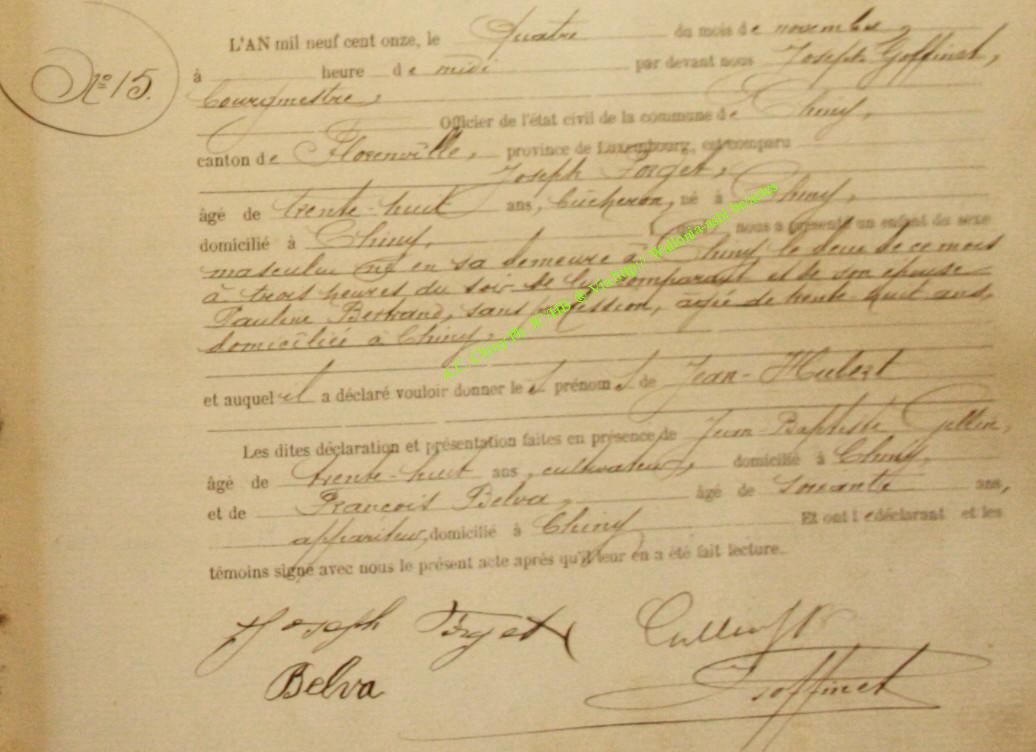 L'AN mil neuf cent onze, le Quatre du mois de novembre,
N° 15.
à heure de midi par devant nous Joseph Goffinet,
bourgmestre,
Officier de l'état civil de la commune de Chiny,
canton de Florenville, province de Luxembourg, est comparu
Joseph Forget,
âgé de trente-huit ans, bûcheron, né à Chiny,
domicilié à Chiny nous a présenté un enfant du sexe
masculin né en sa demeure à Chiny, le deux de ce mois
à trois heures du soir de lui comparant et de son épouse
Pauline Bertrand, sans profession, agée de trente huit ans,
domiciliée à Chiny,
et auquel il a déclaré vouloir donner le s prénom s de Jean-Hubert
Les dites déclaration et présentation faites en présence de Jean-Baptiste
âgé de trente-huit ans, cultivateur, domicilié à Chiny,
et de François Belva, âgé de soixante ans,
appariteur, domicilié à Chiny Et ont l e déclarant et les
témoins signé avec nous le présent acte après qu'il leur en a été fait lecture.
Joseph Forget
Belva Goffinet